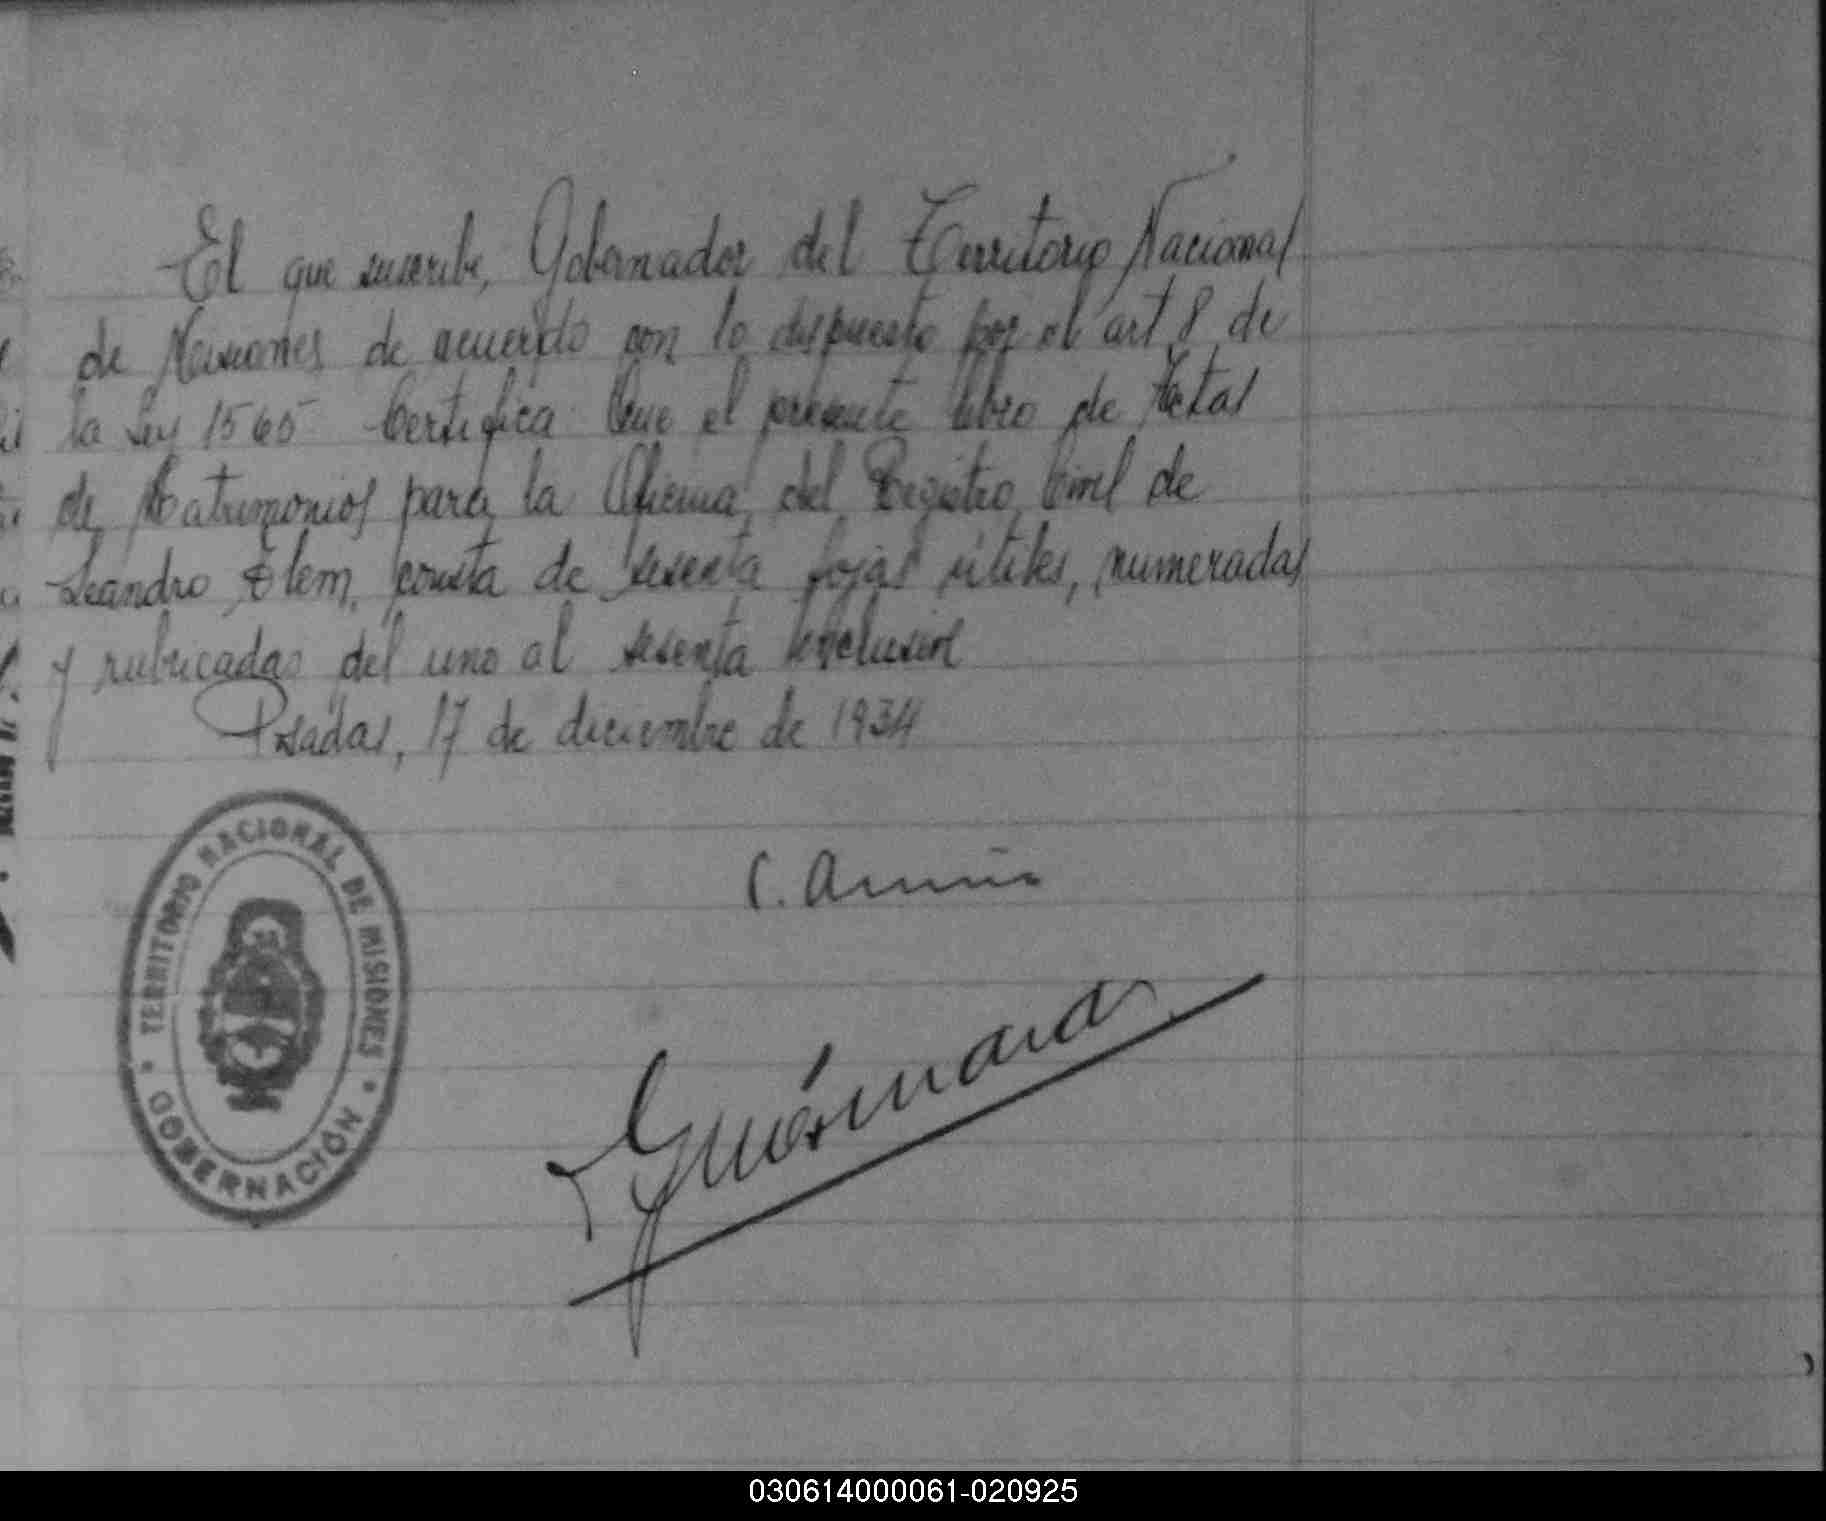 El que suscribe, Gobernador del Territorio Nacional
de Misiones de acuerdo con lo dispuesto por el art 8 de
la Ley 1565 Certifica: Que el presente libro de Actas
de Matrimonios para la Oficina del Registro Civil de
Leandro Alem, consta de sesenta fojas útiles, numeradas
y rubricadas del uno al sesenta inclusive
Posadas, 17 de diciembre de 1934
TERRITORIO NACIONAL DE MISIONES
GOBERNACIÓN
C. 
030614000061-020925